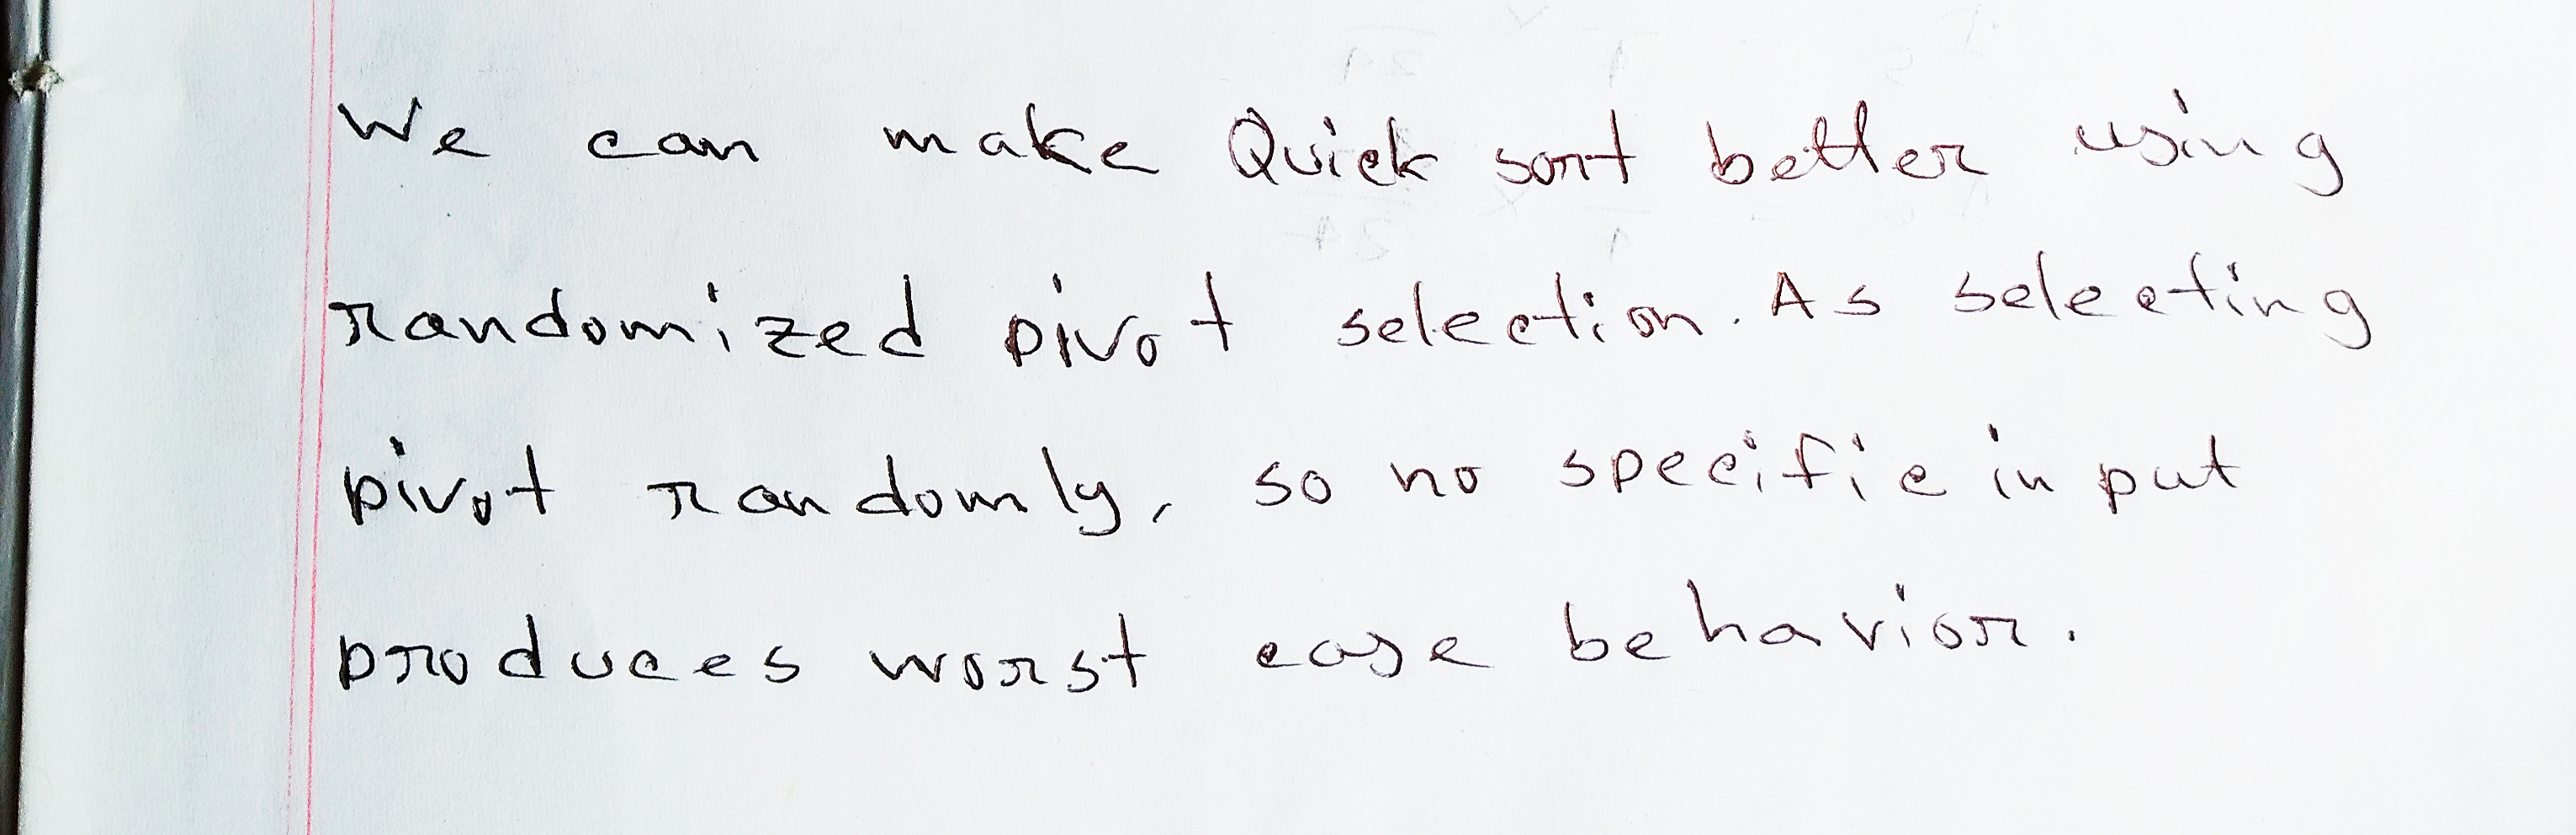 We can make Quick sort better using
randomized pivot selection. As selecting
pivot randomly, so no specific input
produces worst case behavior.